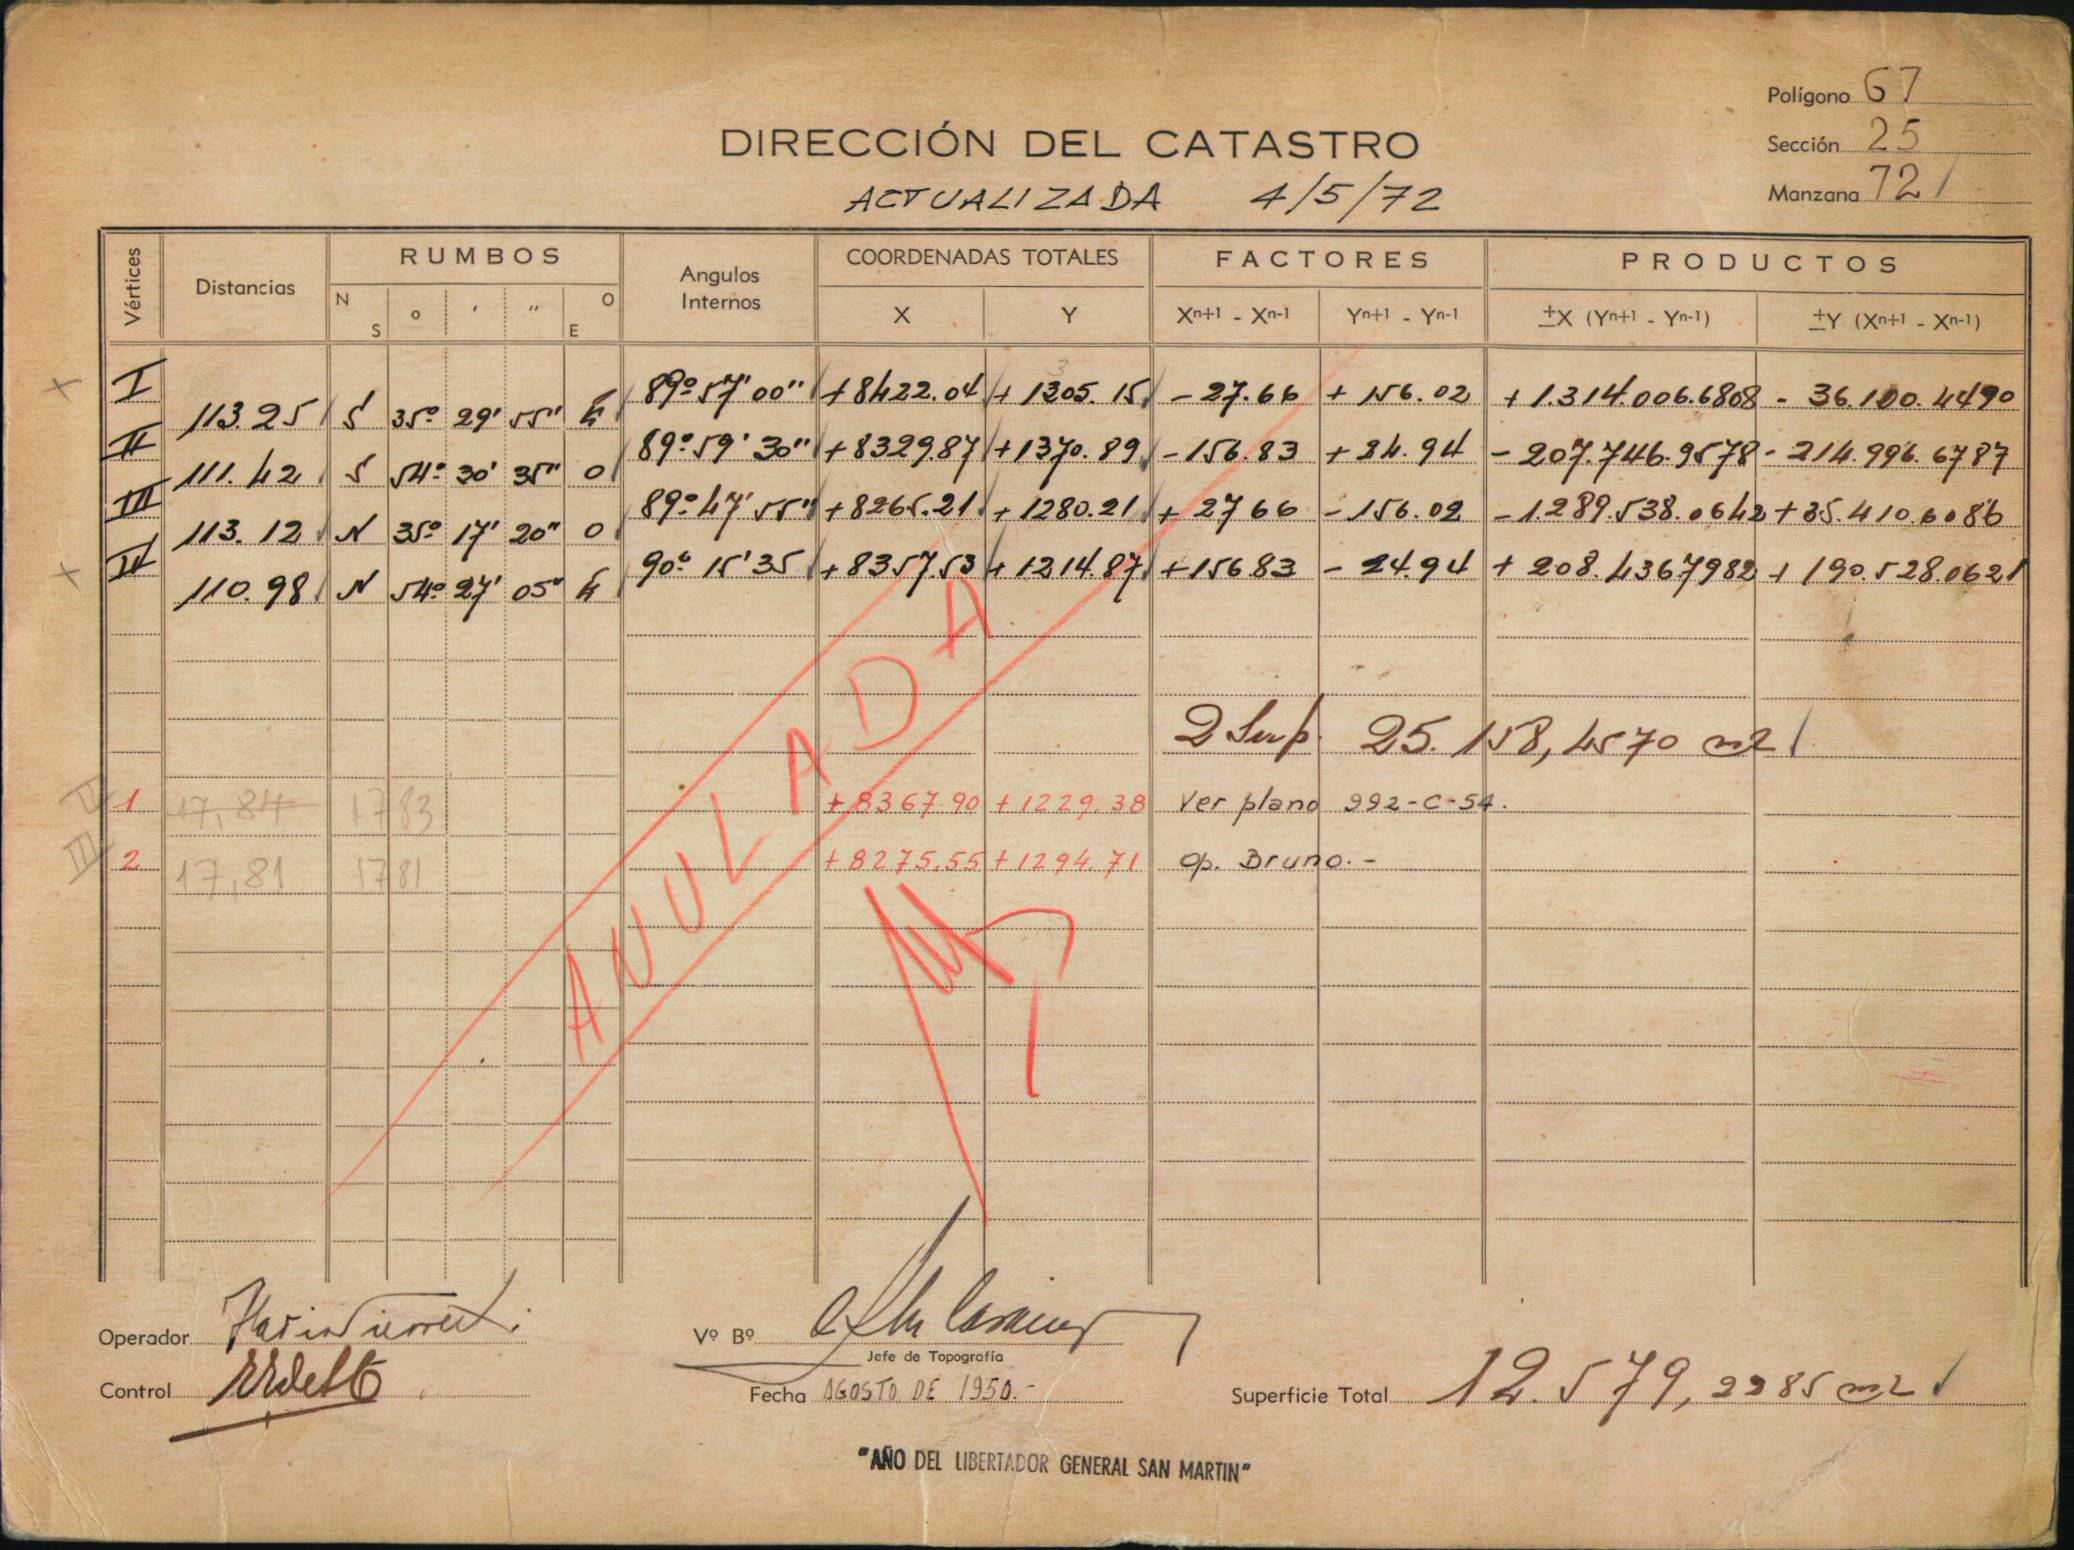 Polígono 67
DIRECCIÓN DEL CATASTRO
Sección 25
ACTUALIZADA 4/5/72
Manzana 72
Vértices Distancias RUMBOS Angulos Internos COORDENADAS TOTALES FACTORES PRODUCTOS
N S º ' '' O E X Y Xn+1 - Xn-1 Yn+1 - Yn-1 ±X (Yn+1 - Yn-1) ±Y (Xn+1 - Xn-1)
I 89º 57' 00'' +8422.04 + 1305.15 - 27.66 + 156.02 + 1.314.006.6808 - 36.100.4490
113.25 S 35º 29' 55' E
II 89º 59' 30'' +8329.87 +1370.89 -156.83 +24.94 - 207.746.9578 - 214.996.6787
111.42 S 54º 30' 35'' O
III 89º 47' 55'' +8265.21 +1280.21 + 27 66 - 156.02 - 1.289.538.0642 + 35.410.6086
113.12 N 35º 17' 20'' O
IV 90º 15' 35 +8357.53 + 1214.87 +156 83 - 24.94 + 208.4367982 + 190.528.0621
110.98 N 54º 27' 05'' E
ANULADA
2 Sup. 25.158,4570 m2
II 1 17,84 17 83 +8367.90 +1229.38 Ver plano 992-C-54.
III 2 17,81 17 81 +8275.55 +1294.71 op. Bruno.-
Operador
Vº Bº
Jefe de Topografía
Control
Fecha AGOSTO DE 1950.-
Superficie Total 12.579,2285 m2
"AÑO DEL LIBERTADOR GENERAL SAN MARTIN"